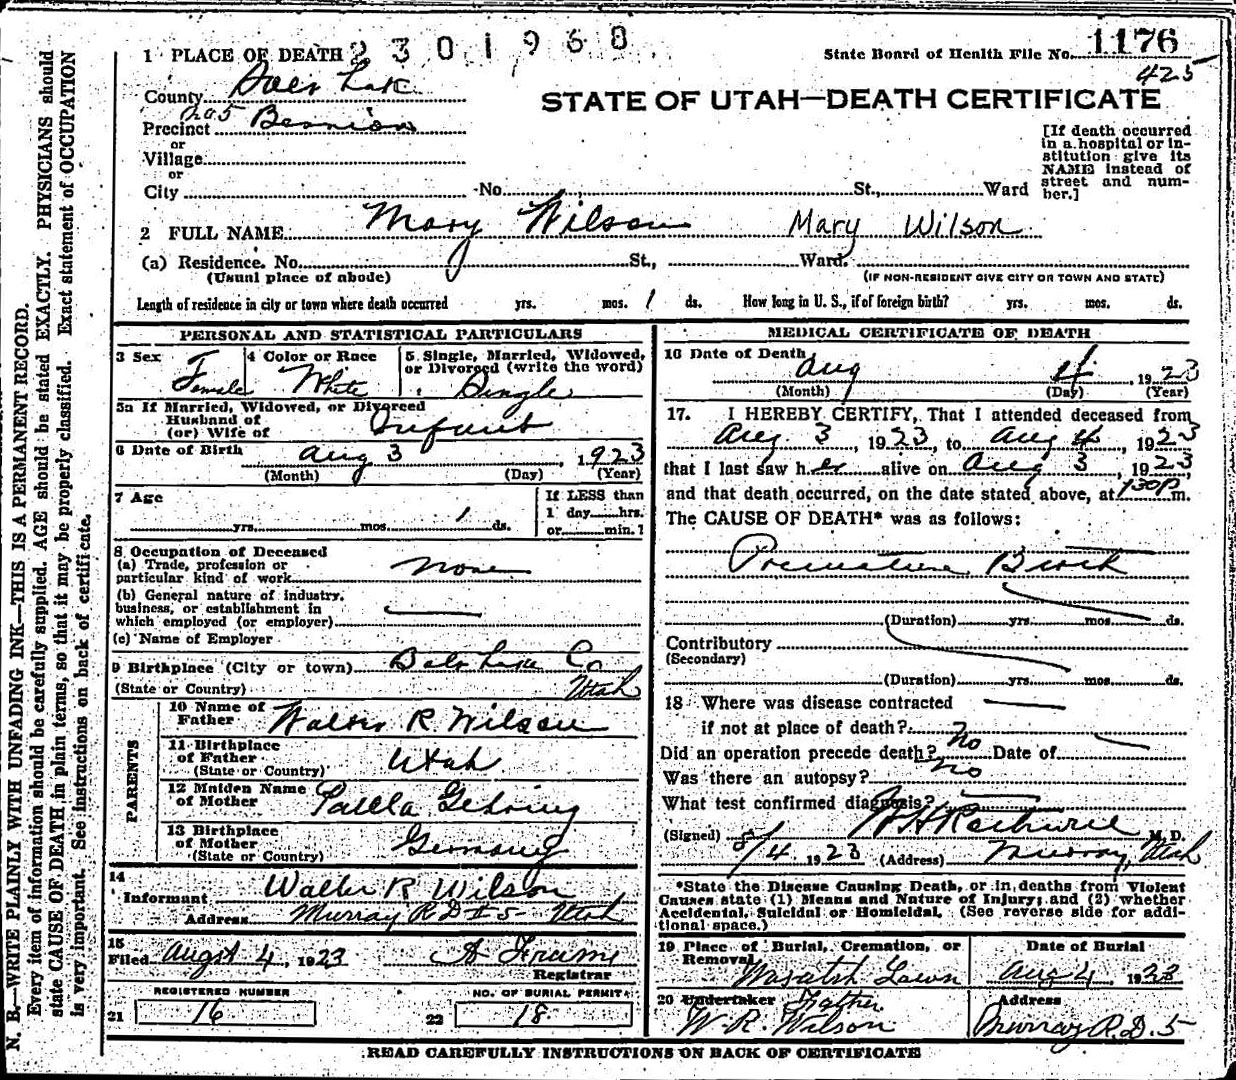 1 PLACE OF DEATH 2 3 0 1 9 6 8
State Board of Health File No. 1176
425
County Salt Lake
STATE OF UTAH—DEATH CERTIFICATE
Precinct
or
Village
or
City No. St., Ward
[If death occurred
in a hospital or in-
stitution give its
NAME instead of
street and num-
ber.]
2 FULL NAME Mary Wilson Mary Wilson
(a) Residence. No. St., Ward.
(Usual place of abode) (IF NON-RESIDENT GIVE CITY OR TOWN AND STATE)
Length of residence in city or town where death occurred yrs. mos. 1 ds. How long in U. S., if of foreign birth? yrs. mos. ds.
PERSONAL AND STATISTICAL PARTICULARS
3 Sex Female
4 Color or Race White
5 Single, Married, Widowed,
or Divorced (write the word)
Single
5a If Married, Widowed, or Divorced
Husband of
(or) Wife of Infant
6 Date of Birth Aug 3, 1923
(Month) (Day) (Year)
7 Age
yrs. mos. 1 ds.
If LESS than
1 day hrs.
or min.?
8 Occupation of Deceased
(a) Trade, profession or
particular kind of work None
(b) General nature of industry,
business, or establishment in
which employed (or employer)
(c) Name of Employer
9 Birthplace (City or town) Salt Lake Co
(State or Country) Utah
PARENTS
10 Name of
Father Walter R Wilson
11 Birthplace
of Father Utah
(State or Country)
12 Maiden Name
of Mother
13 Birthplace
of Mother Germany
(State or Country)
14
Informant Walter R Wilson
Address Murray R D # 5 Utah
15
Filed Augst 4, 1923
Registrar
REGISTERED NUMBER
21 16
NO. OF BURIAL PERMIT
22 18
MEDICAL CERTIFICATE OF DEATH
16 Date of Death
Aug 4, 1923
(Month) (Day) (Year)
17. I HEREBY CERTIFY, That I attended deceased from
Aug 3, 1923, to Aug 4, 1923
that I last saw her alive on Aug 3, 1923,
and that death occurred, on the date stated above, at 130P m.
The CAUSE OF DEATH* was as follows:
Premature Birth
(Duration) yrs. mos. ds.
Contributory
(Secondary)
(Duration) yrs. mos. ds.
18 Where was disease contracted
if not at place of death?
Did an operation precede death? No Date of
Was there an autopsy? No
What test confirmed diagnosis?
(Signed) M. D.
8/4 1923 (Address) Murray, Utah
*State the Disease Causing Death, or in deaths from Violent
Causes state (1) Means and Nature of Injury; and (2) whether
Accidental, Suicidal or Homicidal. (See reverse side for addi-
tional space.)
19 Place of Burial, Cremation, or
Removal
Wasatch Lawn
Date of Burial
Aug 4 1923
20 Undertaker Father
W. R. Wilson
Address
Murray R.D. 5
READ CAREFULLY INSTRUCTIONS ON BACK OF CERTIFICATE
N. B.—WRITE PLAINLY WITH UNFADING INK—THIS IS A PERMANENT RECORD.
Every item of information should be carefully supplied. AGE should be stated EXACTLY. PHYSICIANS should
state CAUSE OF DEATH in plain terms, so that it may be properly classified. Exact statement of OCCUPATION
is very important. See instructions on back of certificate.